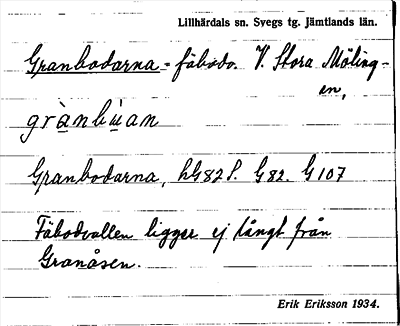 Lillhärdals sn. Svegs tg. Jämtlands län.
Granbodarna - fäbodo. V. Stora Möling-
en,
grànbùan
Granbodarna, hG82S. G82. G107
Fäbodvallen ligger ej långt från
Granåsen.
Erik Eriksson 1934.